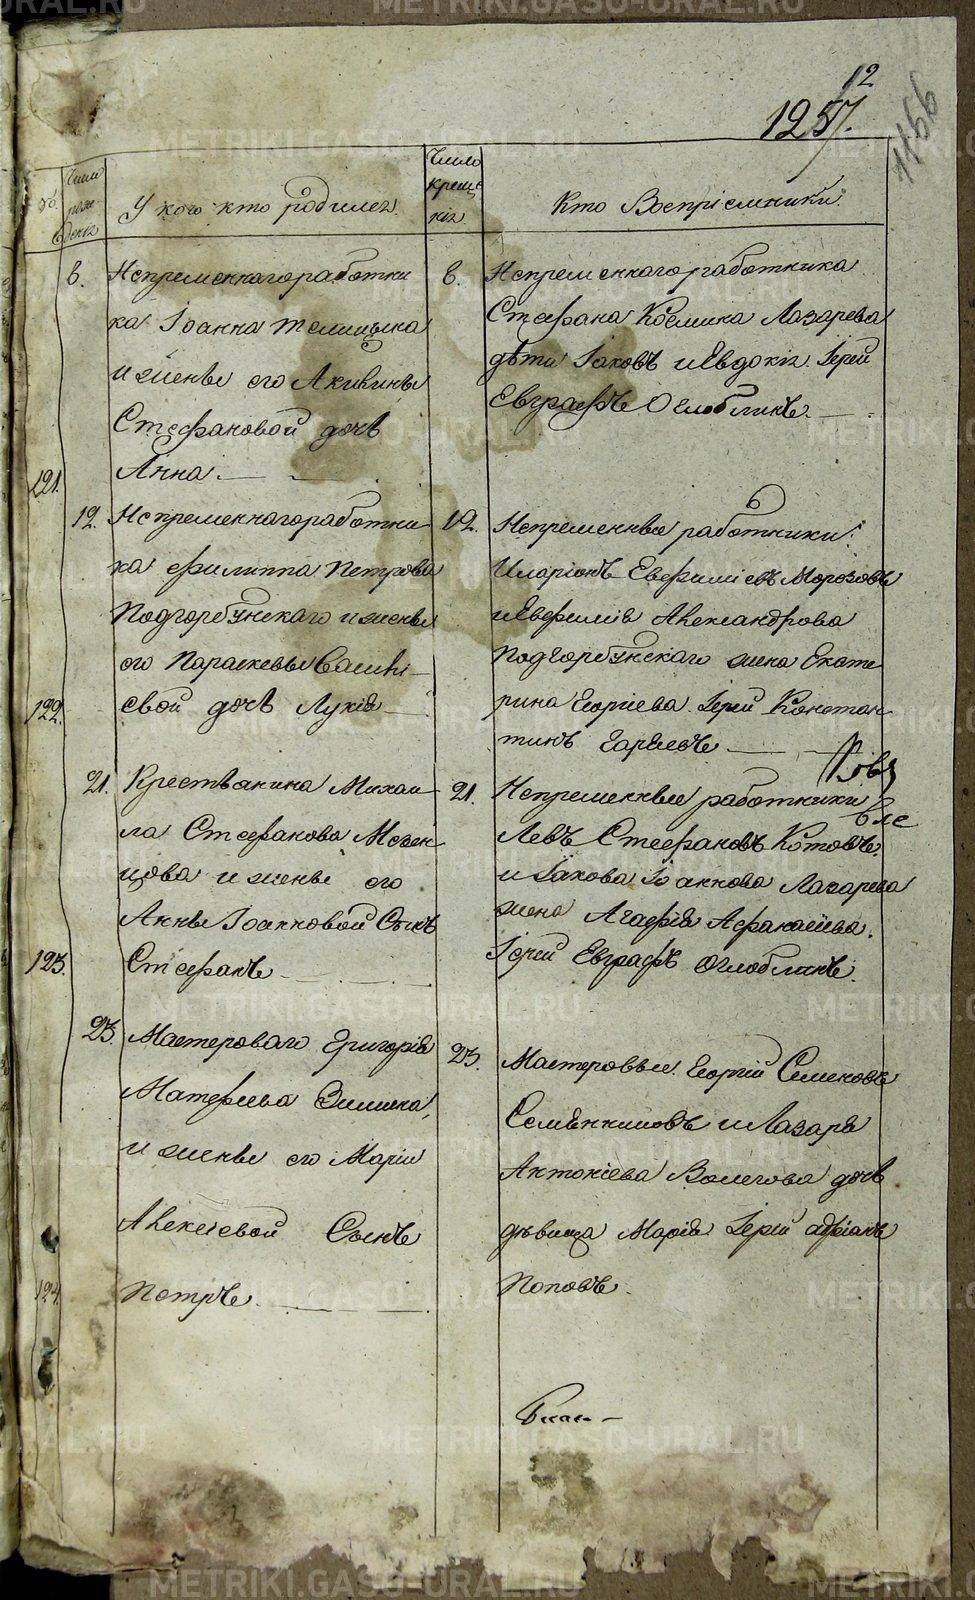 12
1257.
1166
№
Число рождения
У кого кто родился.
Число крещения
Кто Восприемники.
121.
6.
Непременнаго работни
ка Іоанна
и жены его Акилины
Стефановой дочь
Анна.
6.
Непременнаго работника
Стефана Космина Лазарева
дѣти Іаковъ и Евдокія. Іерей
Евграфъ Оглоблинъ.
122.
12.
Непременнаго работни
ка Филиппа Петрова
Подгорбунскаго и жены
его Параскевы Василі
евой дочь Лукія
12.
Непременные работники:
Иларіонъ Евфиміевъ Морозовъ
и Евфимія Александрова
Подгорбунскаго жена Екате
рина Георгіева. Іерей Констан
тинъ
123.
21.
Крестьянина Михаи
ла Стефанова Мезен
цова и жены его
Анны Іоанновой Сынъ
Стефанъ
21.
Непременные работники
Левъ Стефановъ Котовъ.
и Іакова Іоаннова Лазарева
жена Агафія Афанасіева.
Іерей Евграфъ Оглоблинъ.
124.
23.
Мастероваго Григорія
Матфеева Зимина,
и жены его Маріи
Алексіевой Сынъ
Петръ.
23.
Мастеровые. Георгій Семеновъ
Семянниковъ и Лазаря
Антоніева Волегова дочь
дѣвица Марія Іерей Адріанъ
Поповъ.
METRIKI.GASO-URAL.RU